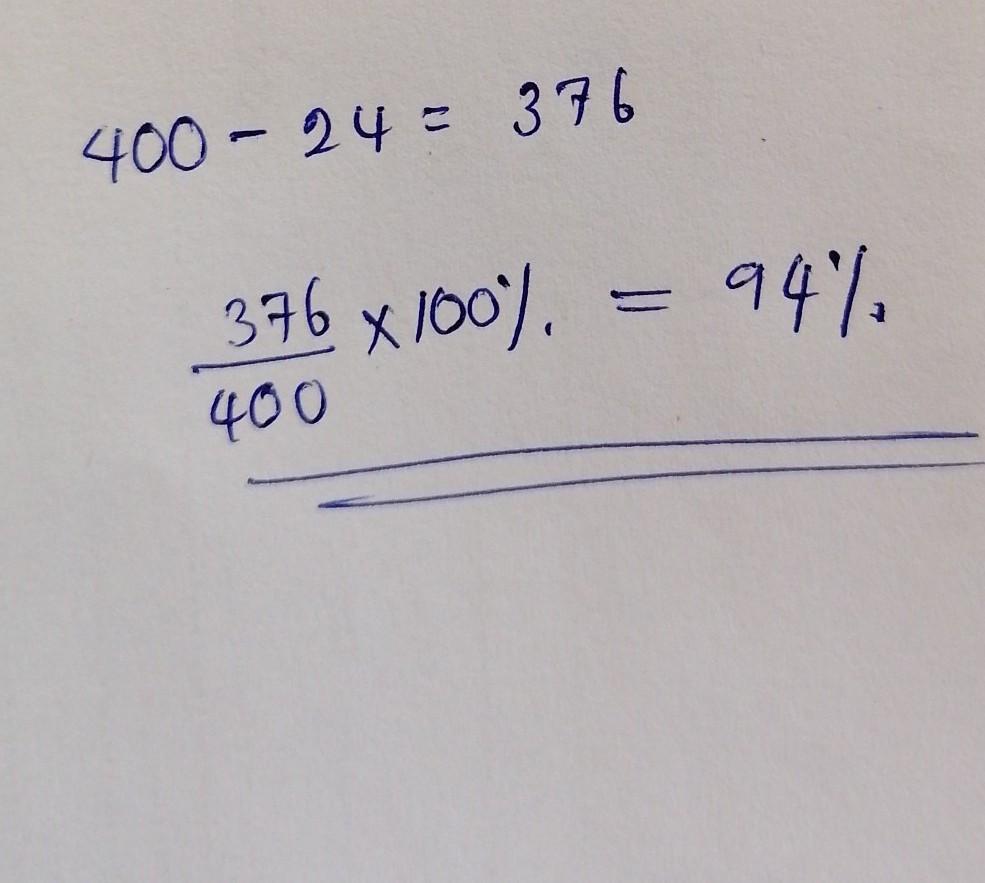 400 - 24 = 376
376
400
× 100% = 94%